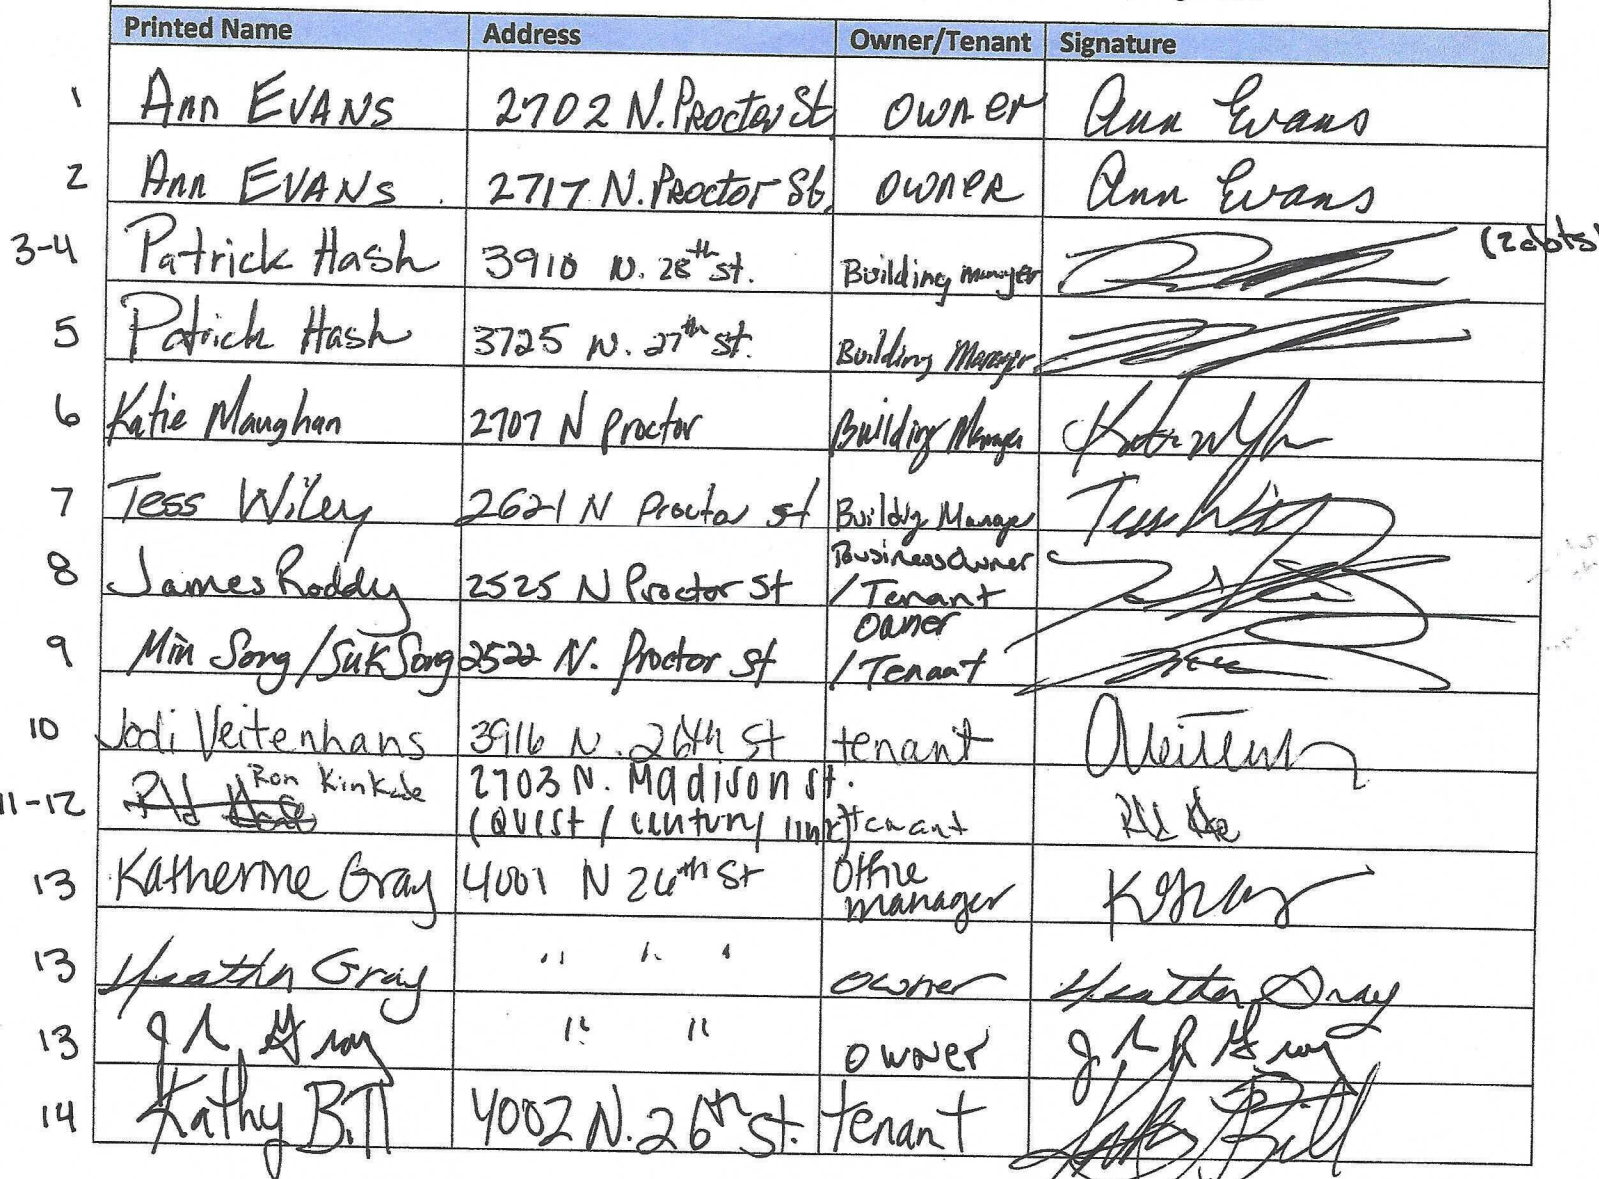 Printed Name Address Owner/Tenant Signature
1 Ann EVANS 2702 N. Proctor St owner Ann Evans
2 Ann EVANS 2717 N. Proctor St. owner Ann Evans
3-4 Patrick Hash 3910 N. 28th St. Building manager
5 Patrick Hash 3725 N. 27th St. Building Manager
6 Katie Maughan 2707 N Proctor Building Manager
7 Tess Wiley 2621 N Proctor st Building Manager Tess Wiley
8 James Roddy 2525 N Proctor St Business Owner
/Tenant
9 Min Song/Suk Song 2522 N. Proctor St owner
/Tenant
10 Jodi Veitenhans 3916 N. 26th St tenant
11-12 Ron Kinkade 2703 N. Madison st.
(QUEST / century link) tenant
13 Katherine Gray 4001 N 26th St Office
manager K Gray
13 Heather Gray " " owner Heather Gray
13 J R Gray " " owner J R Gray
14 Kathy Bill 4002 N. 26th St. tenant Kathy Bill